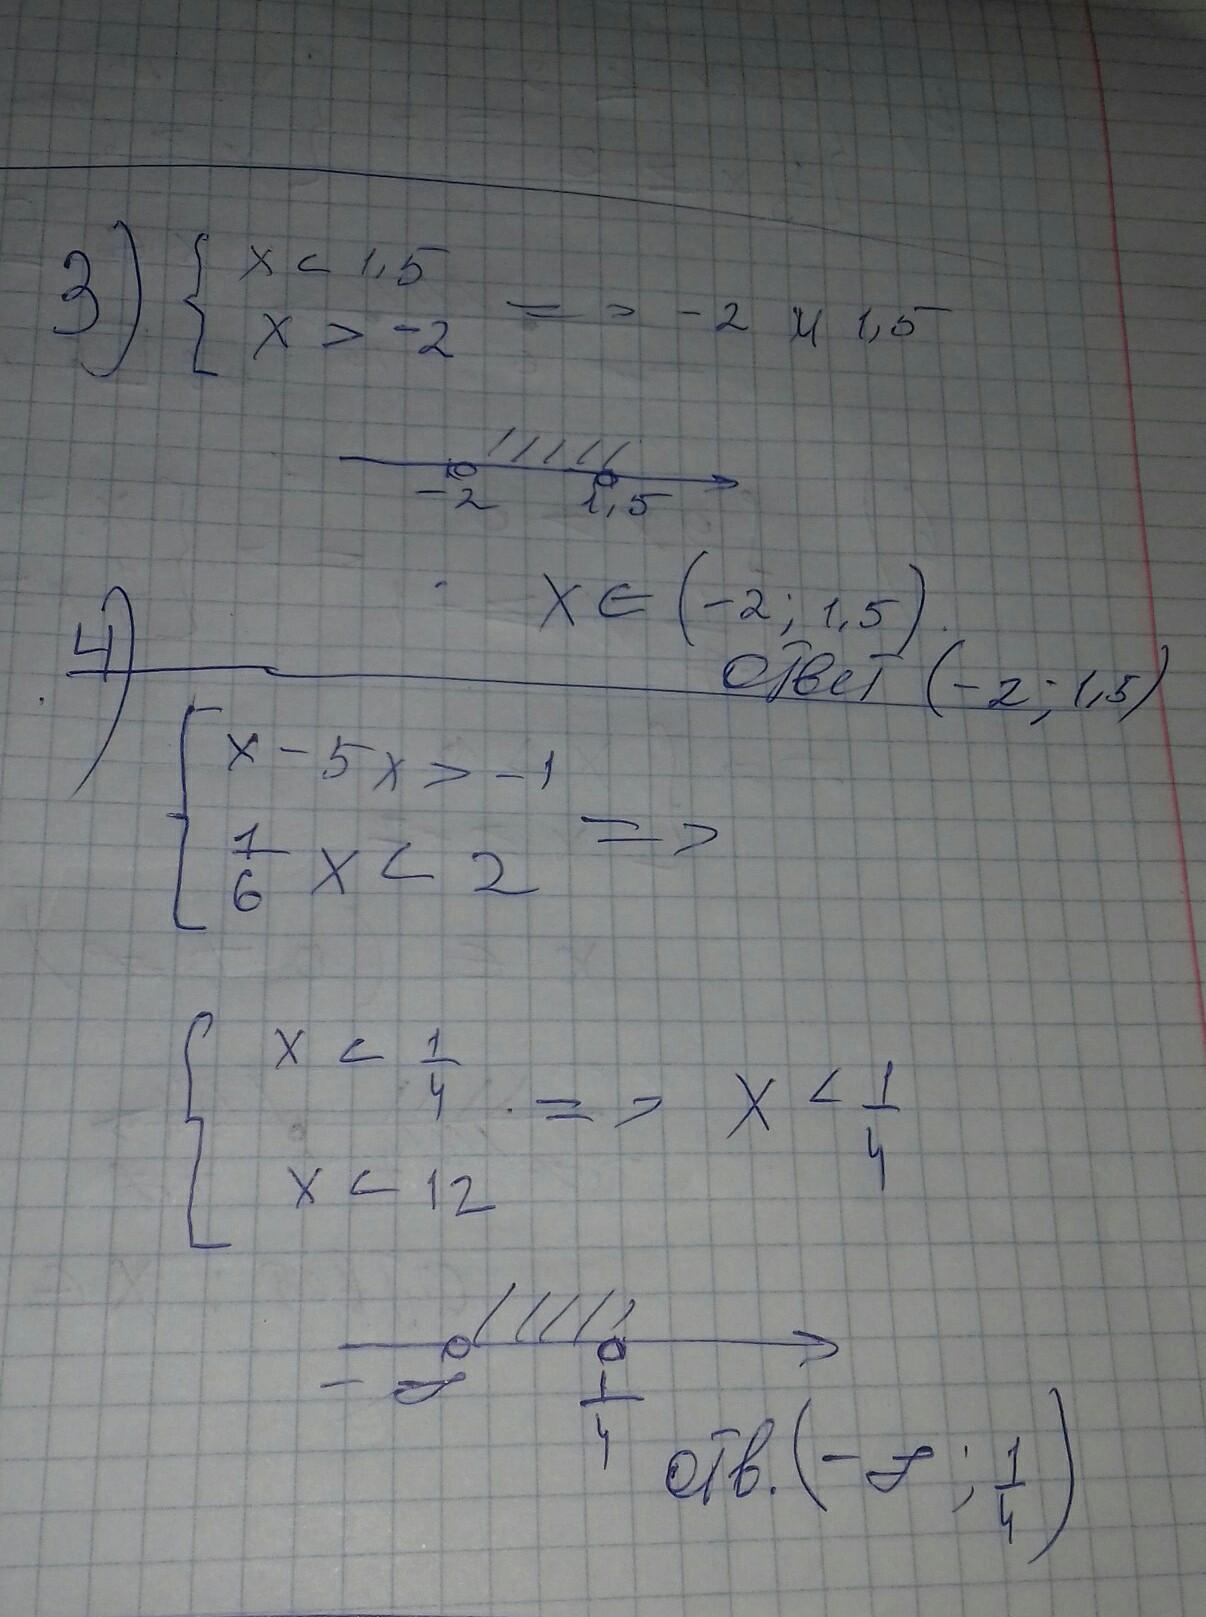 3) { x < 1,5
x > -2 => -2 и 1,5
-2 1,5
x ∈ (-2; 1,5).
Ответ (-2; 1,5)
4)
{ x - 5x > -1
1/6 x < 2 =>
{ x < 1/4
x < 12 => x < 1/4
-∞ 1/4
Отв. (-∞; 1/4)